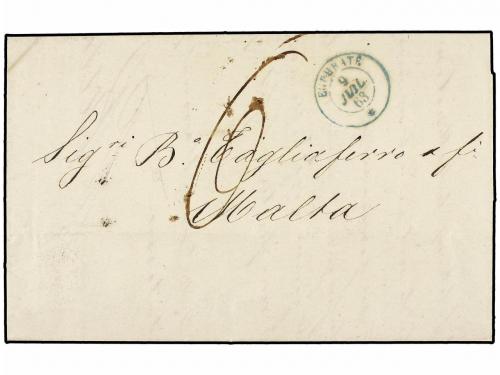 EUPHRATE
9
JUIL.
63
6
Sigri B. Tagliaferro & fi
Malta